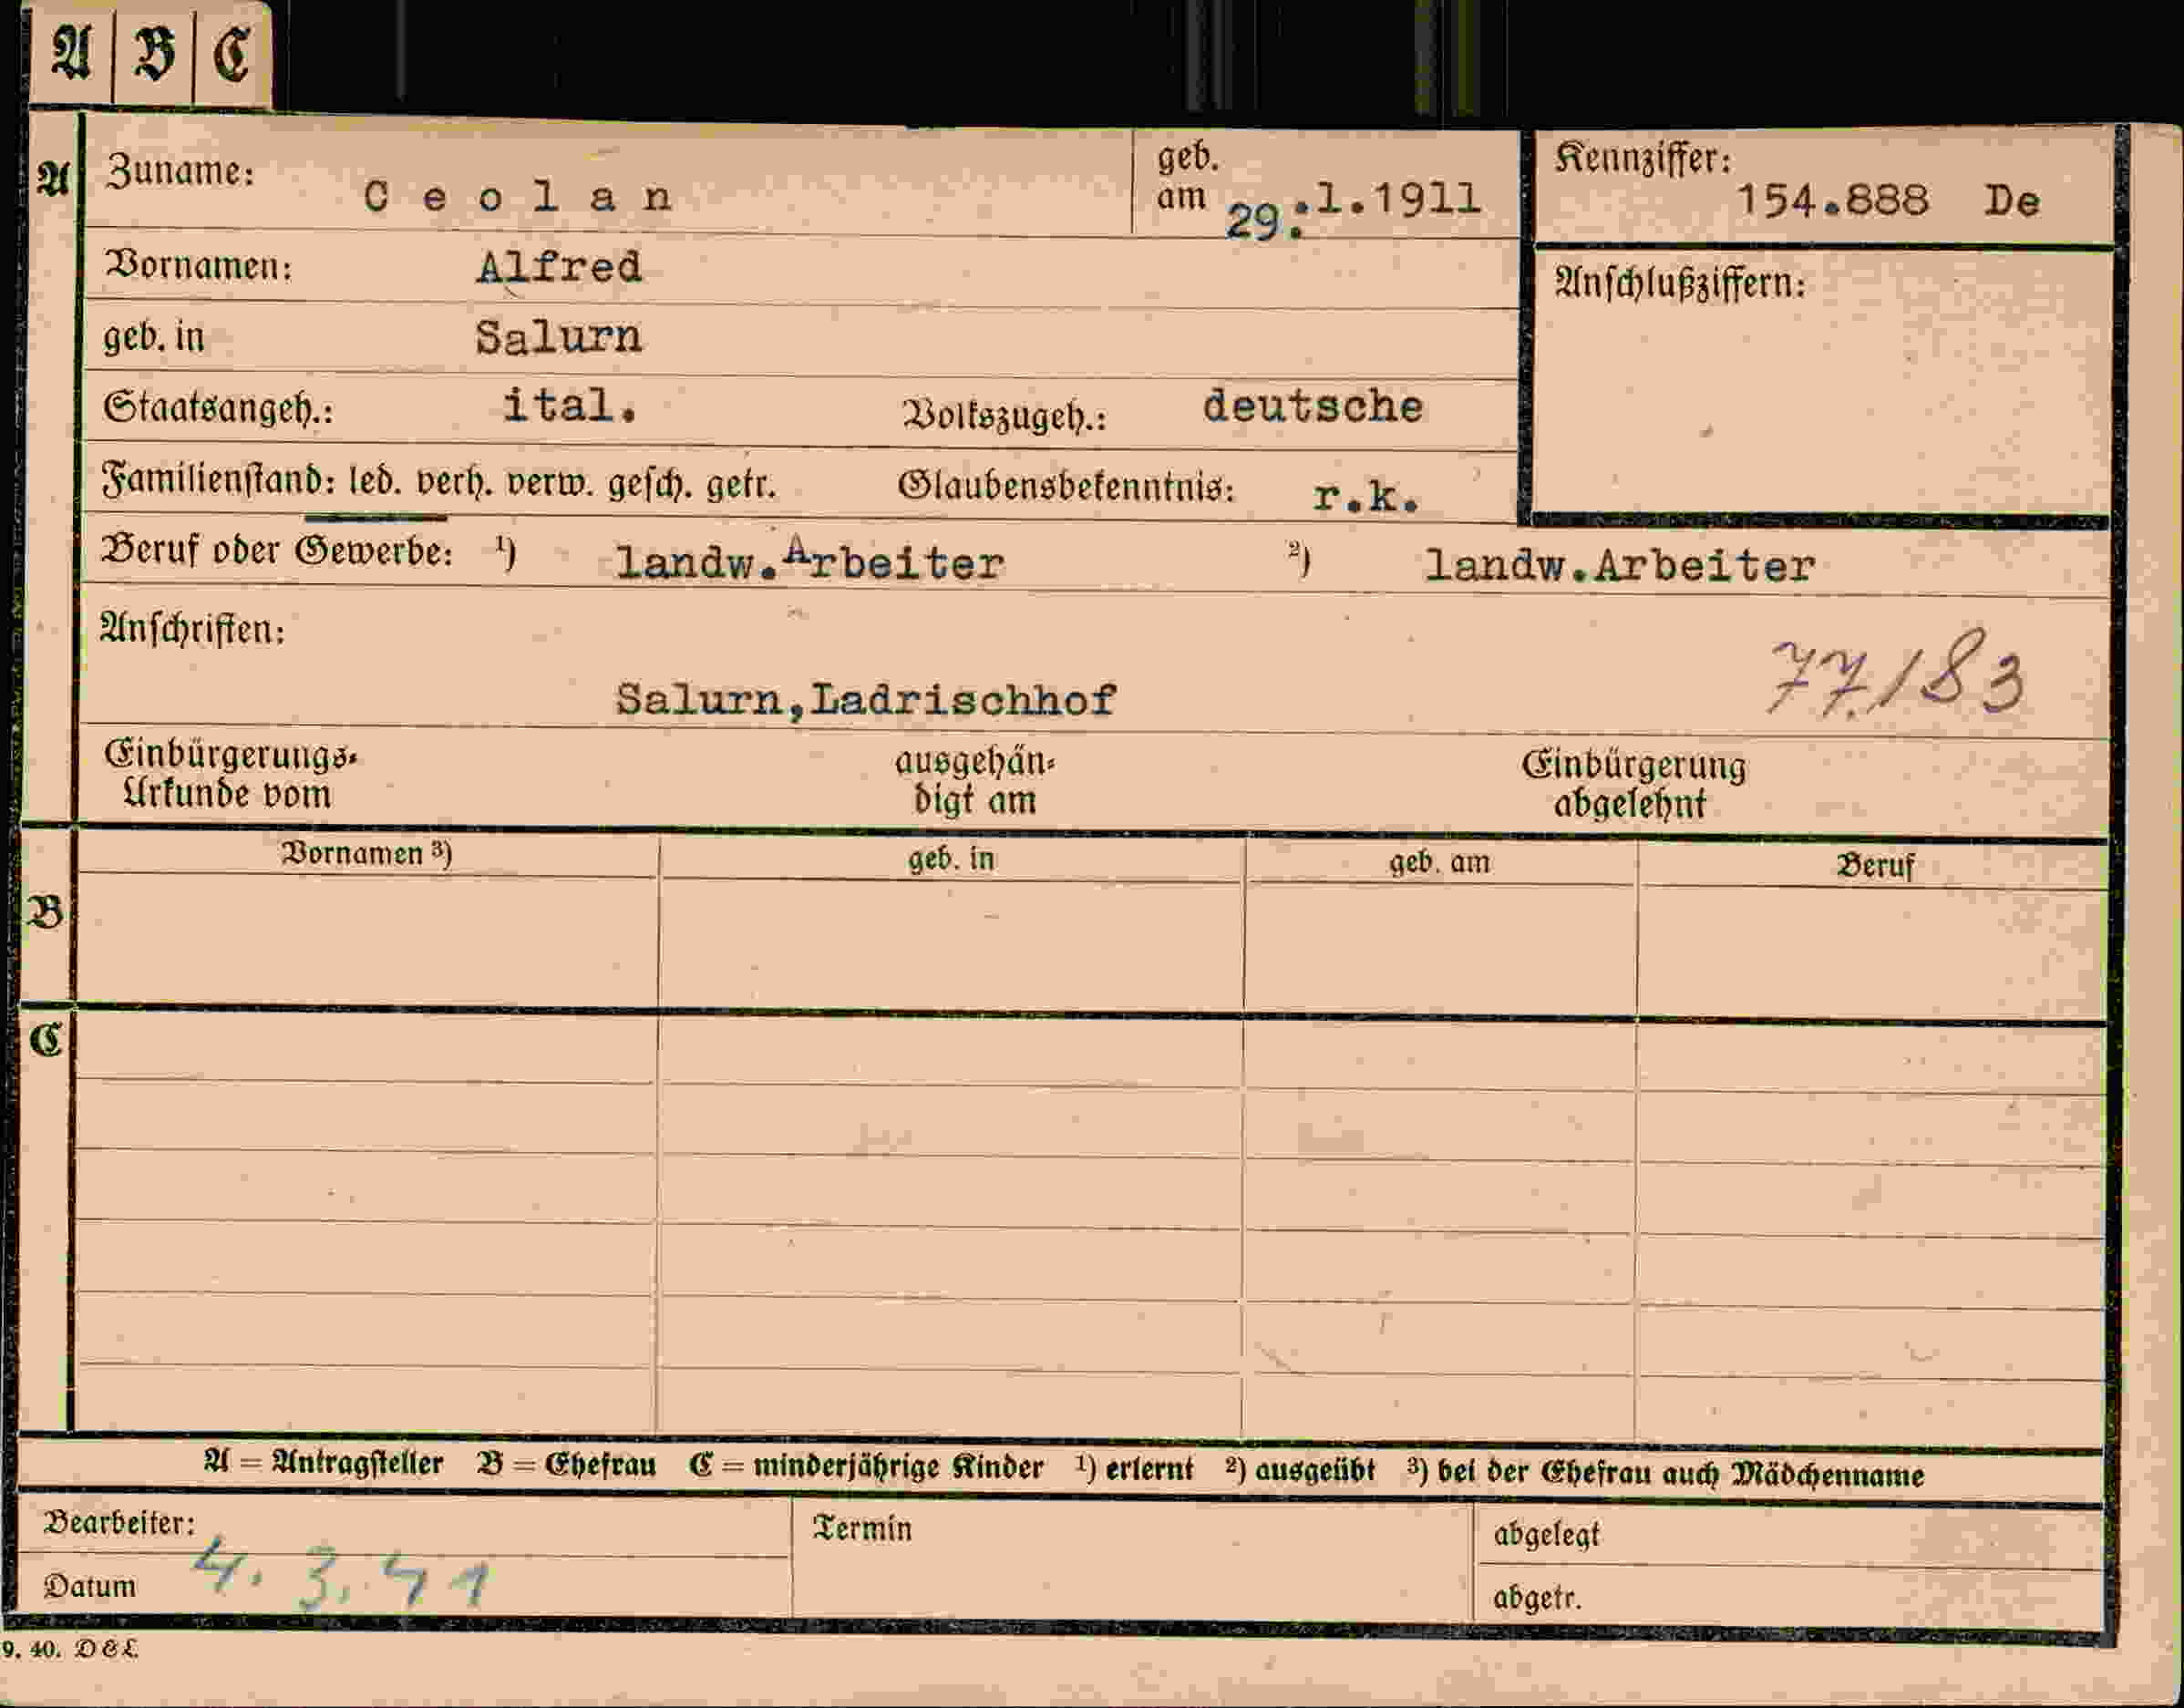 A B C
A Zuname: Ceolan geb. am 29.1.1911 Kennziffer: 154.888 De
Vornamen: Alfred Anschlußziffern:
geb. in Salurn
Staatsangeh.: ital. Volkszugeh.: deutsche
Familienstand: led. verh. verw. gesch. getr. Glaubensbekenntnis: r.k.
Beruf oder Gewerbe: ¹) landw.Arbeiter ²) landw.Arbeiter
Anschriften:
Salurn,Ladrischhof 77.183
Einbürgerungs- Urkunde vom ausgehän- digt am Einbürgerung abgelehnt
Vornamen ³) geb. in geb. am Beruf
B
C
A = Antragsteller B = Ehefrau C = minderjährige Kinder ¹) erlernt ²) ausgeübt ³) bei der Ehefrau auch Mädchenname
Bearbeiter: Termin abgelegt
Datum 4. 3. 41 abgetr.
9. 40. D&L